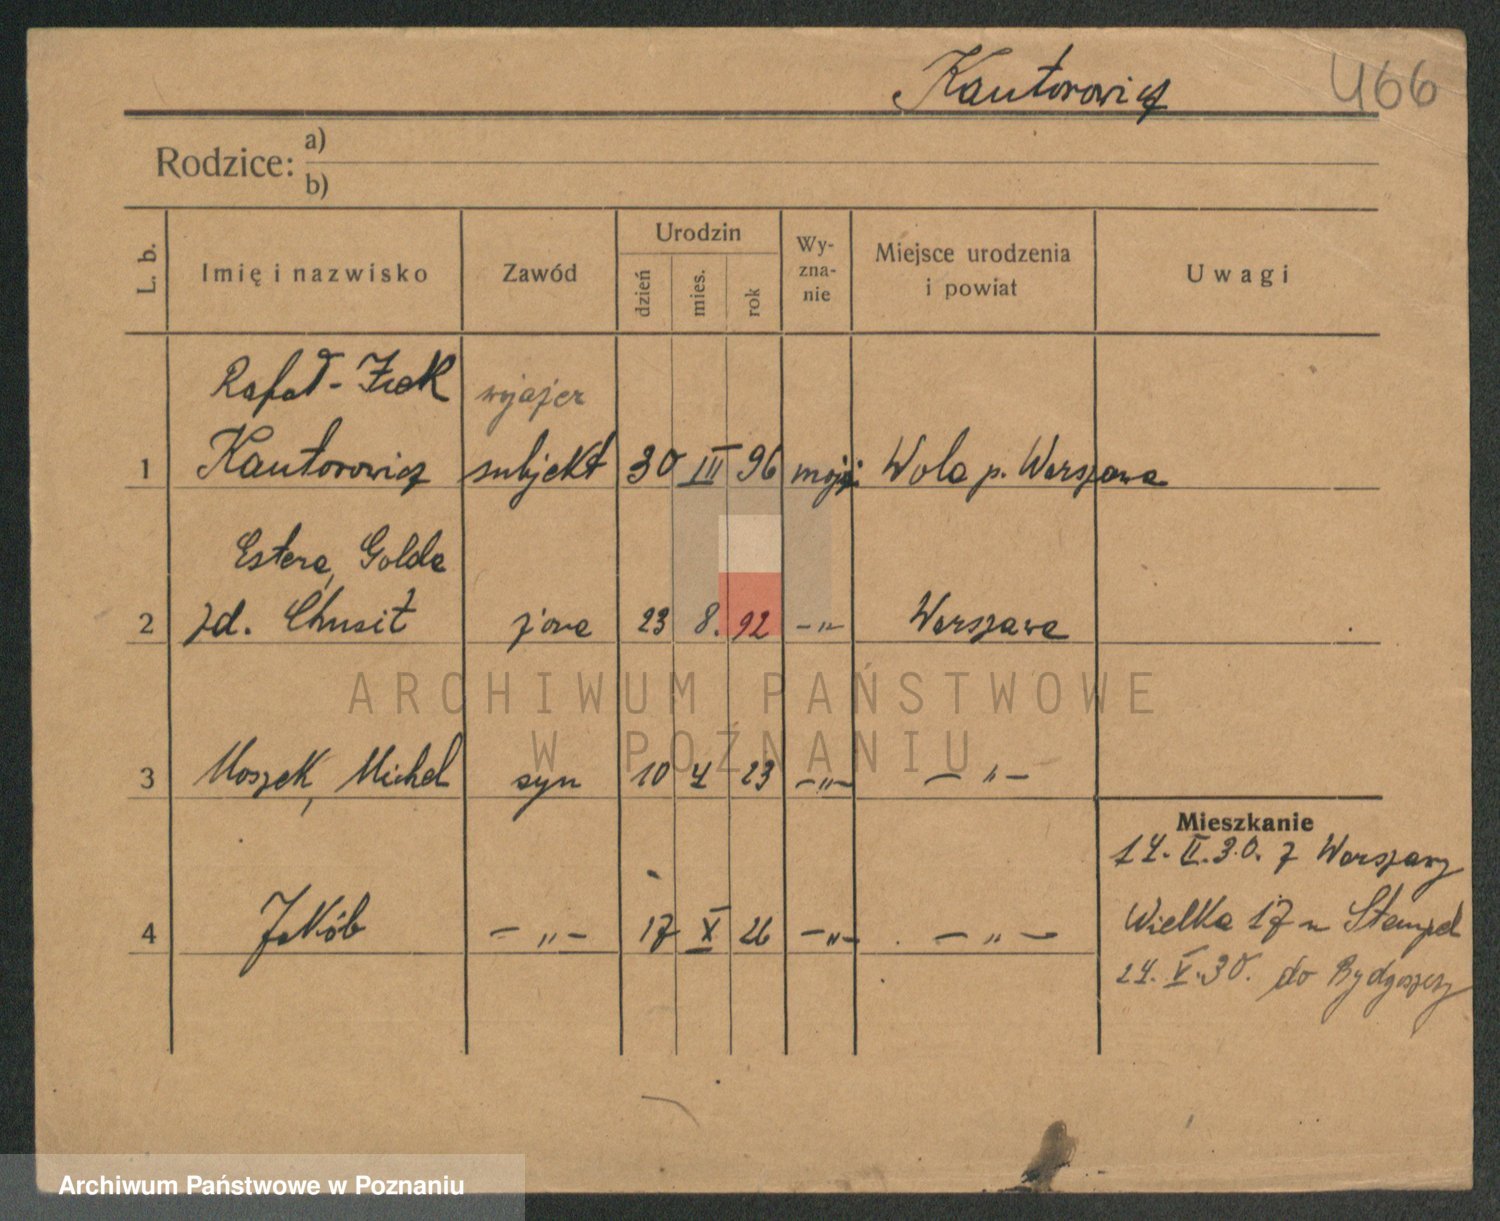 Kantorowicz 466
Rodzice: a)
b)
L. b. Imię i nazwisko Zawód Urodzin dzień mies. rok Wy-zna-nie Miejsce urodzenia i powiat Uwagi
Rafał-Icek
1 Kantorowicz subjekt 30 III 96 mojż Wola p. Warszawa
Estera, Golda
2 zd. Chusit żona 23 8. 92 -„- Warszawa
3 Moszek, Michel syn 10 4 23 -„- -„-
Mieszkanie
14. II. 30. z Warszawy
4 Jakób -„- 17 X 26 -„- -„-
Wielka 17 u Stempel
24. V. 30. do Bydgoszczy
ARCHIWUM PAŃSTWOWE
W POZNANIU
Archiwum Państwowe w Poznaniu